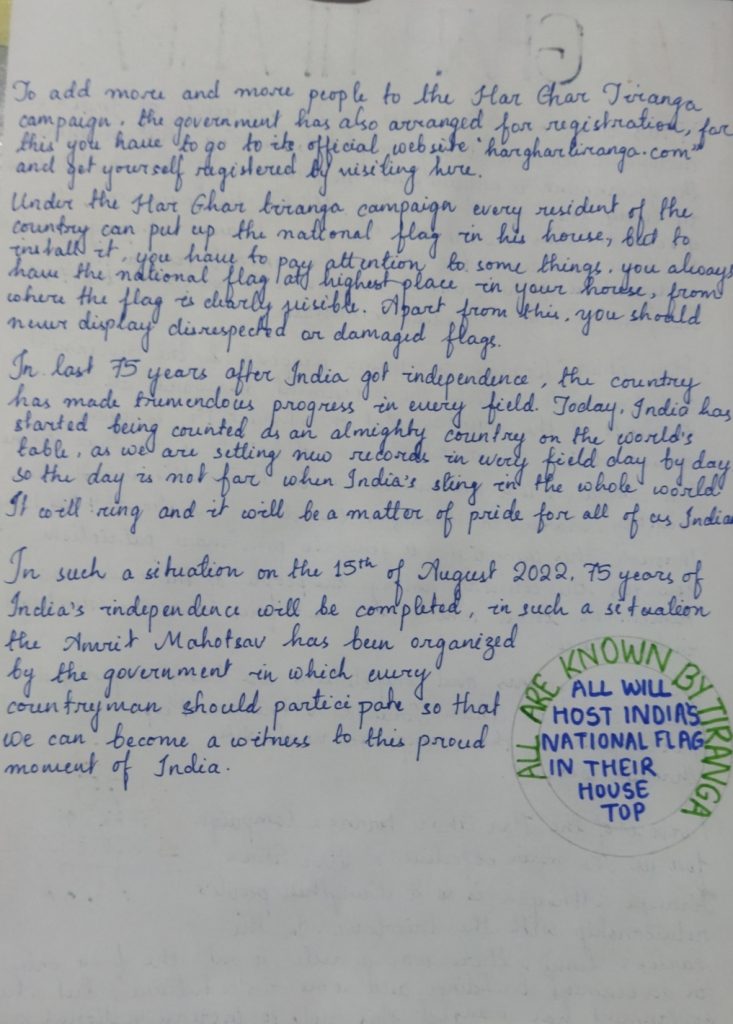 To add more and more people to the Har Ghar Tiranga
campaign. the government has also arranged for registration, for
this you have to go to its official website "harghartiranga.com"
and get yourself registered by visiting here.
Under the Har Ghar tiranga campaign every resident of the
country can put up the national flag in his house, but to
install it, you have to pay attention to some things. you always
have the national flag at highest place in your house, from
where the flag is clearly visible. Apart from this, you should
never display disrespected or damaged flags.
In last 75 years after India got independence, the country
has made tremendous progress in every field. Today, India has
started being counted as an almighty country on the world's
table, as we are setting new records in every field day by day
so the day is not far when India's sting in the whole world
It will ring and it will be a matter of pride for all of us India
In such a situation on the 15th of August 2022, 75 years of
India's independence will be completed, in such a situation
the Amrit Mahotsav has been organized
by the government in which every
countryman should participate so that
we can become a witness to this proud
moment of India.
ALL ARE KNOWN BY TIRANGA
ALL WILL
HOST INDIA'S
NATIONAL FLAG
IN THEIR
HOUSE
TOP